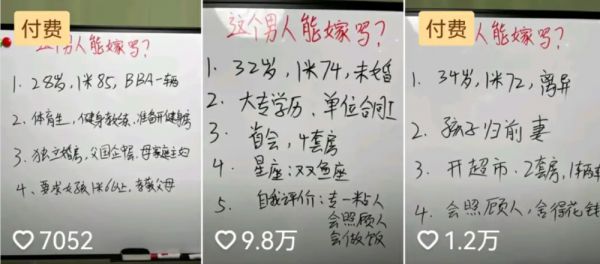 付费
这个男人能嫁吗？
1. 28岁，1米85，BBA一辆
2. 体育生，健身教练，准备开健身房
3. 独立婚房，父国企领导，母家庭主妇
4、要求女孩1米6以上，孝敬父母
7052
这个男人能嫁吗？
1. 32岁，1米74，未婚
2. 大专学历、单位合同工
3. 省会，4套房
4. 星座：双鱼座
5. 自我评价：专一粘人
会照顾人
会做饭
9.8万
付费
这个男人能嫁吗？
1. 34岁，1米72，离异
2. 孩子归前妻
3. 开超市、2套房，1辆车
4. 会照顾人，舍得花钱
1.2万